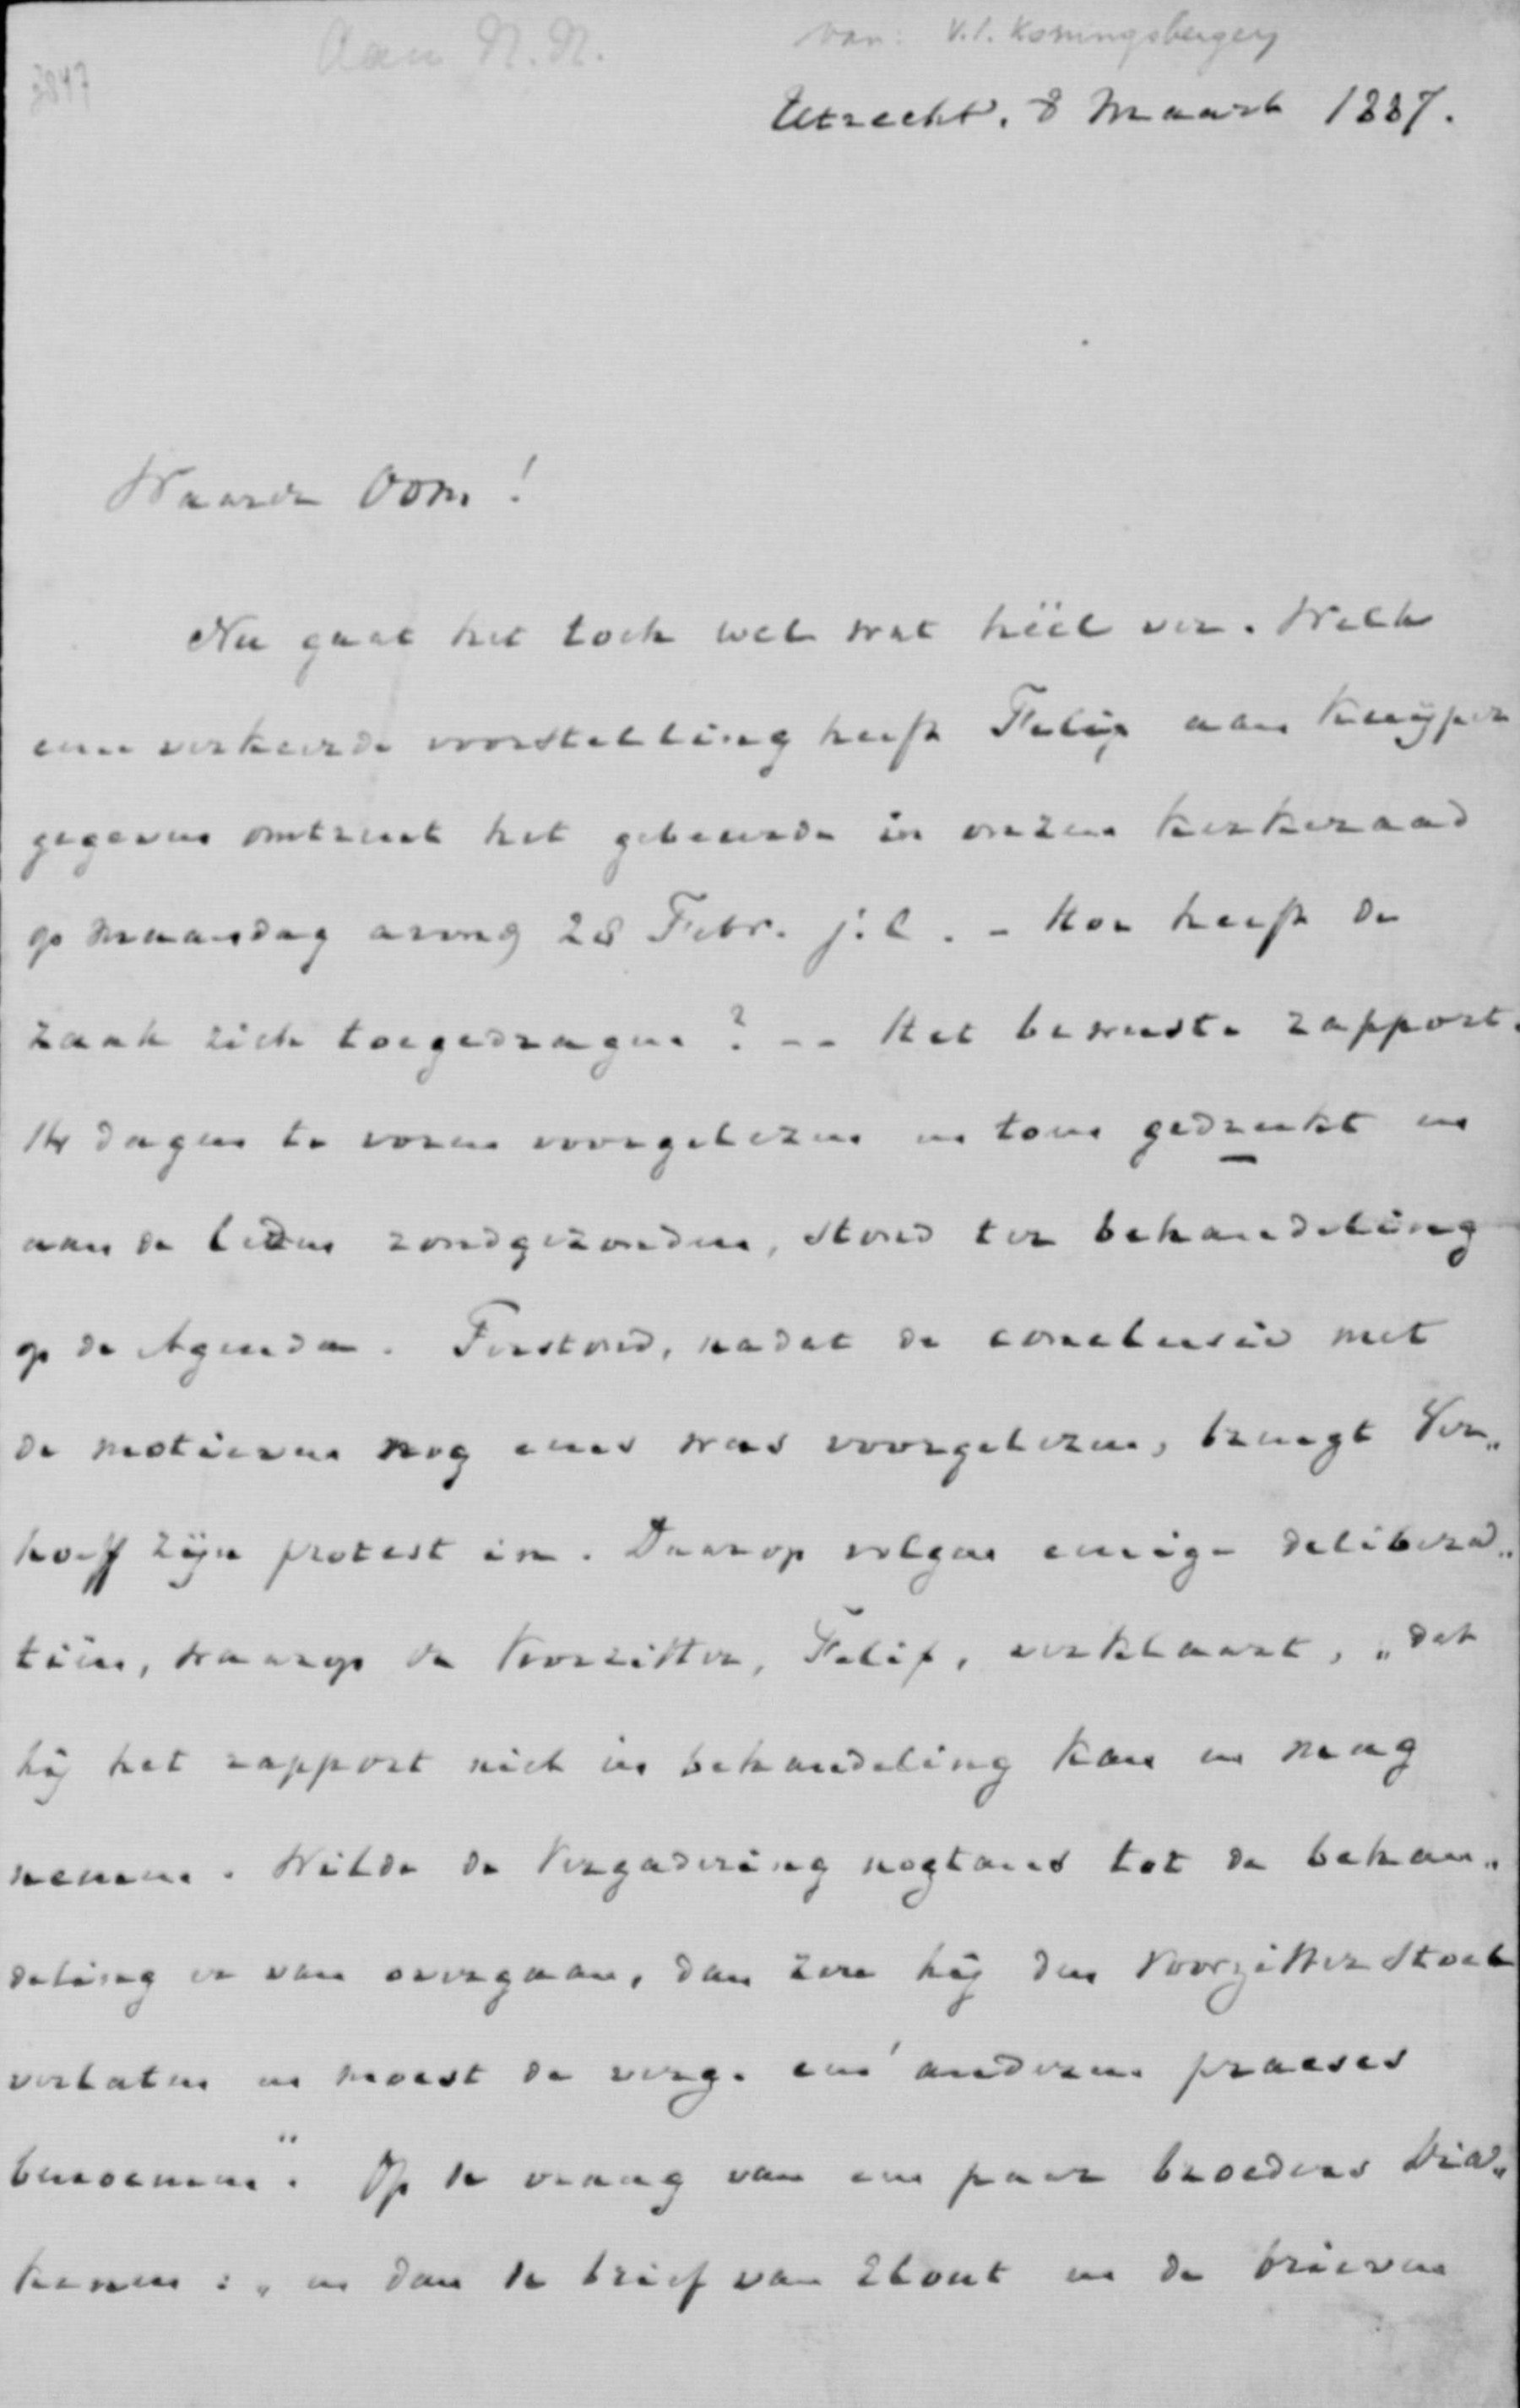 3847
Aan N.N.
van: V.J. Koningsberger
Utrecht, 8 Maart 1887.
Waarde Oom!
Nu gaat het toch wel wat héél ver. Welk
eene verkeerde voorstelling heeft Felix aan Kuijper
gegeven omtrent het gebeurde in onzen kerkeraad
op Maandag avond 28 Febr. j.l. - Hoe heeft de
zaak zich toegedragen? -- Het bewuste rapport,
14 dagen te voren voorgelezen en toen gedrukt en
aan de leden rondgezonden, stond ter behandeling
op de Agenda. Terstond, nadat de conclusie met
de motieven nog eens was voorgelezen, brengt Ver„
hoeff zijn protest in. Daarop volgen eenige delibera„
tiën, waarop de Voorzitter, Felix, verklaart, „dat
hij het rapport niet in behandeling kan en mag
nemen. Wilde de Vergadering nogtans tot de behan„
deling er van overgaan, dan zou hij den Voorzitterstoel
verlaten en moest de verg. een' anderen praeses
benoemen". Op de vraag van een paar broeders Dia„
kenen: „en dan de brief van Elout en de brieven